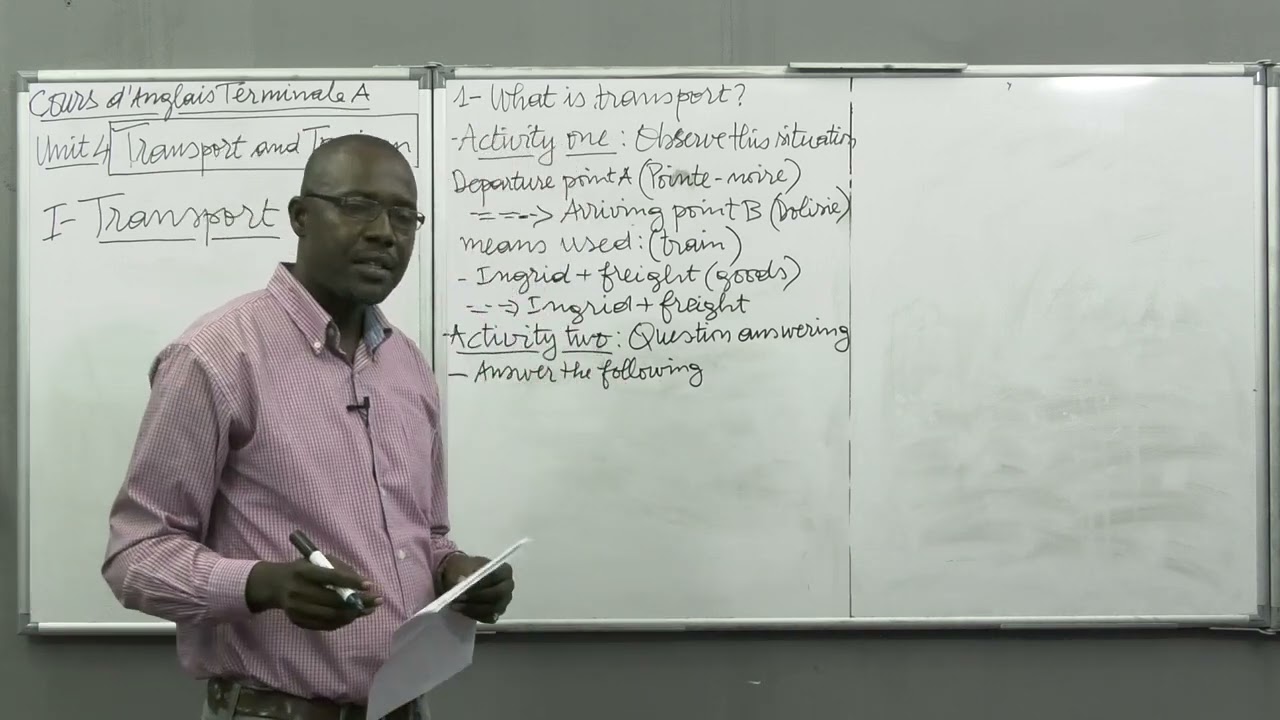 Cours d'Anglais Términale A
Unit 4 Transport and
I- Transport
1- What is transport?
-Activity one: Observe this situation
Departure point A (Pointe-noire)
===-> Arriving point B (Dolisie)
means used: (train)
- Ingrid + freight (goods)
---> Ingrid + freight
-Activity two: Question answering
- Answer the following